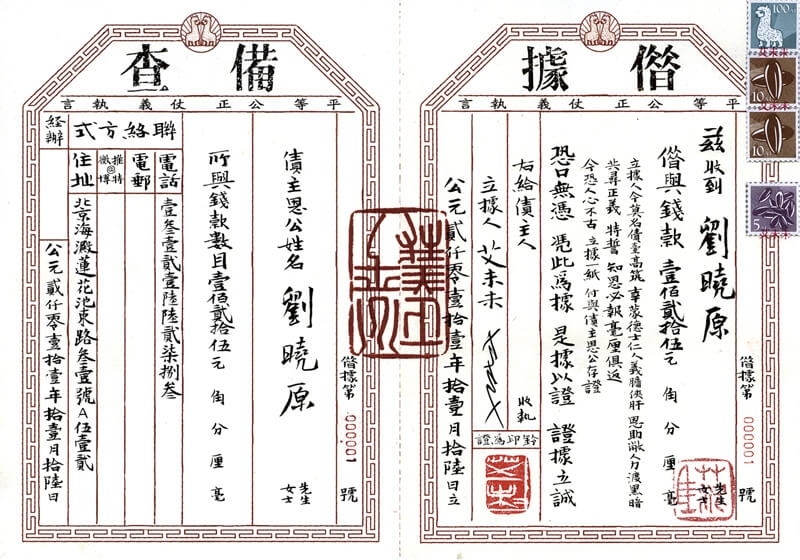 借據
平等公正仗義執言
借據第 000001 號
茲收到 劉曉原 先生 女士
借與錢款 壹佰貳拾伍元 角 分 厘 毫
立據人今莫名債臺高筑 幸蒙德士仁人義膽俠肝 思助敝人力渡黑暗
共尋正義 特誓 知恩必報 毫厘俱返
今恐人心不古 立據一紙 付與債主恩公存證
恐口無憑 憑此為據 是據以證 證據立誠
右給債主人 收執
立據人 艾未未
鈐印為證
公元貳仟零壹拾壹年拾壹月拾陸日立
100
10
10
5
備查
平等公正仗義執言
借據第 000001 號
債主恩公姓名 劉曉原 先生 女士
所與錢款數目壹佰貳拾伍元 角 分 厘 毫
聯絡方式
電話 壹叁壹貳壹陸陸貳柒捌叁
電郵
推特@微博
住址 北京海澱蓮花池東路叁壹號A伍壹貳
經辦
公元貳仟零壹拾壹年拾壹月拾陸日